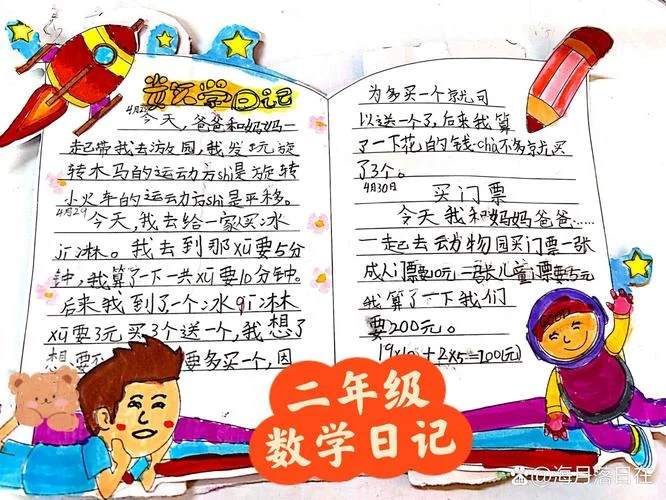 数学日记
4月25
今天,爸爸和妈妈一
起带我去游园,我发现旋
转木马的运动方shì是旋转
小火车的运动方shì是平移。
4月29
今天,我去给一家买冰
jī淋。我去到那xū要5分
钟,我算了一下一共xū要10分钟。
后来我到了一个冰qī淋
xū要3元买3个送一个,我想了
想要不要多买一个,因
为多买一个就可
以送一个了,后来我算
了一下花的钱chà不多就买
了3个。
4月30日
买门票
今天我和妈妈爸爸……
一起去动物园买门票一张
成人门票要10元一张儿童门票要5元
我算了一下我们
要200元。
19×10+2×5=200(元)
GOOD
二年级
数学日记
@海月落日在